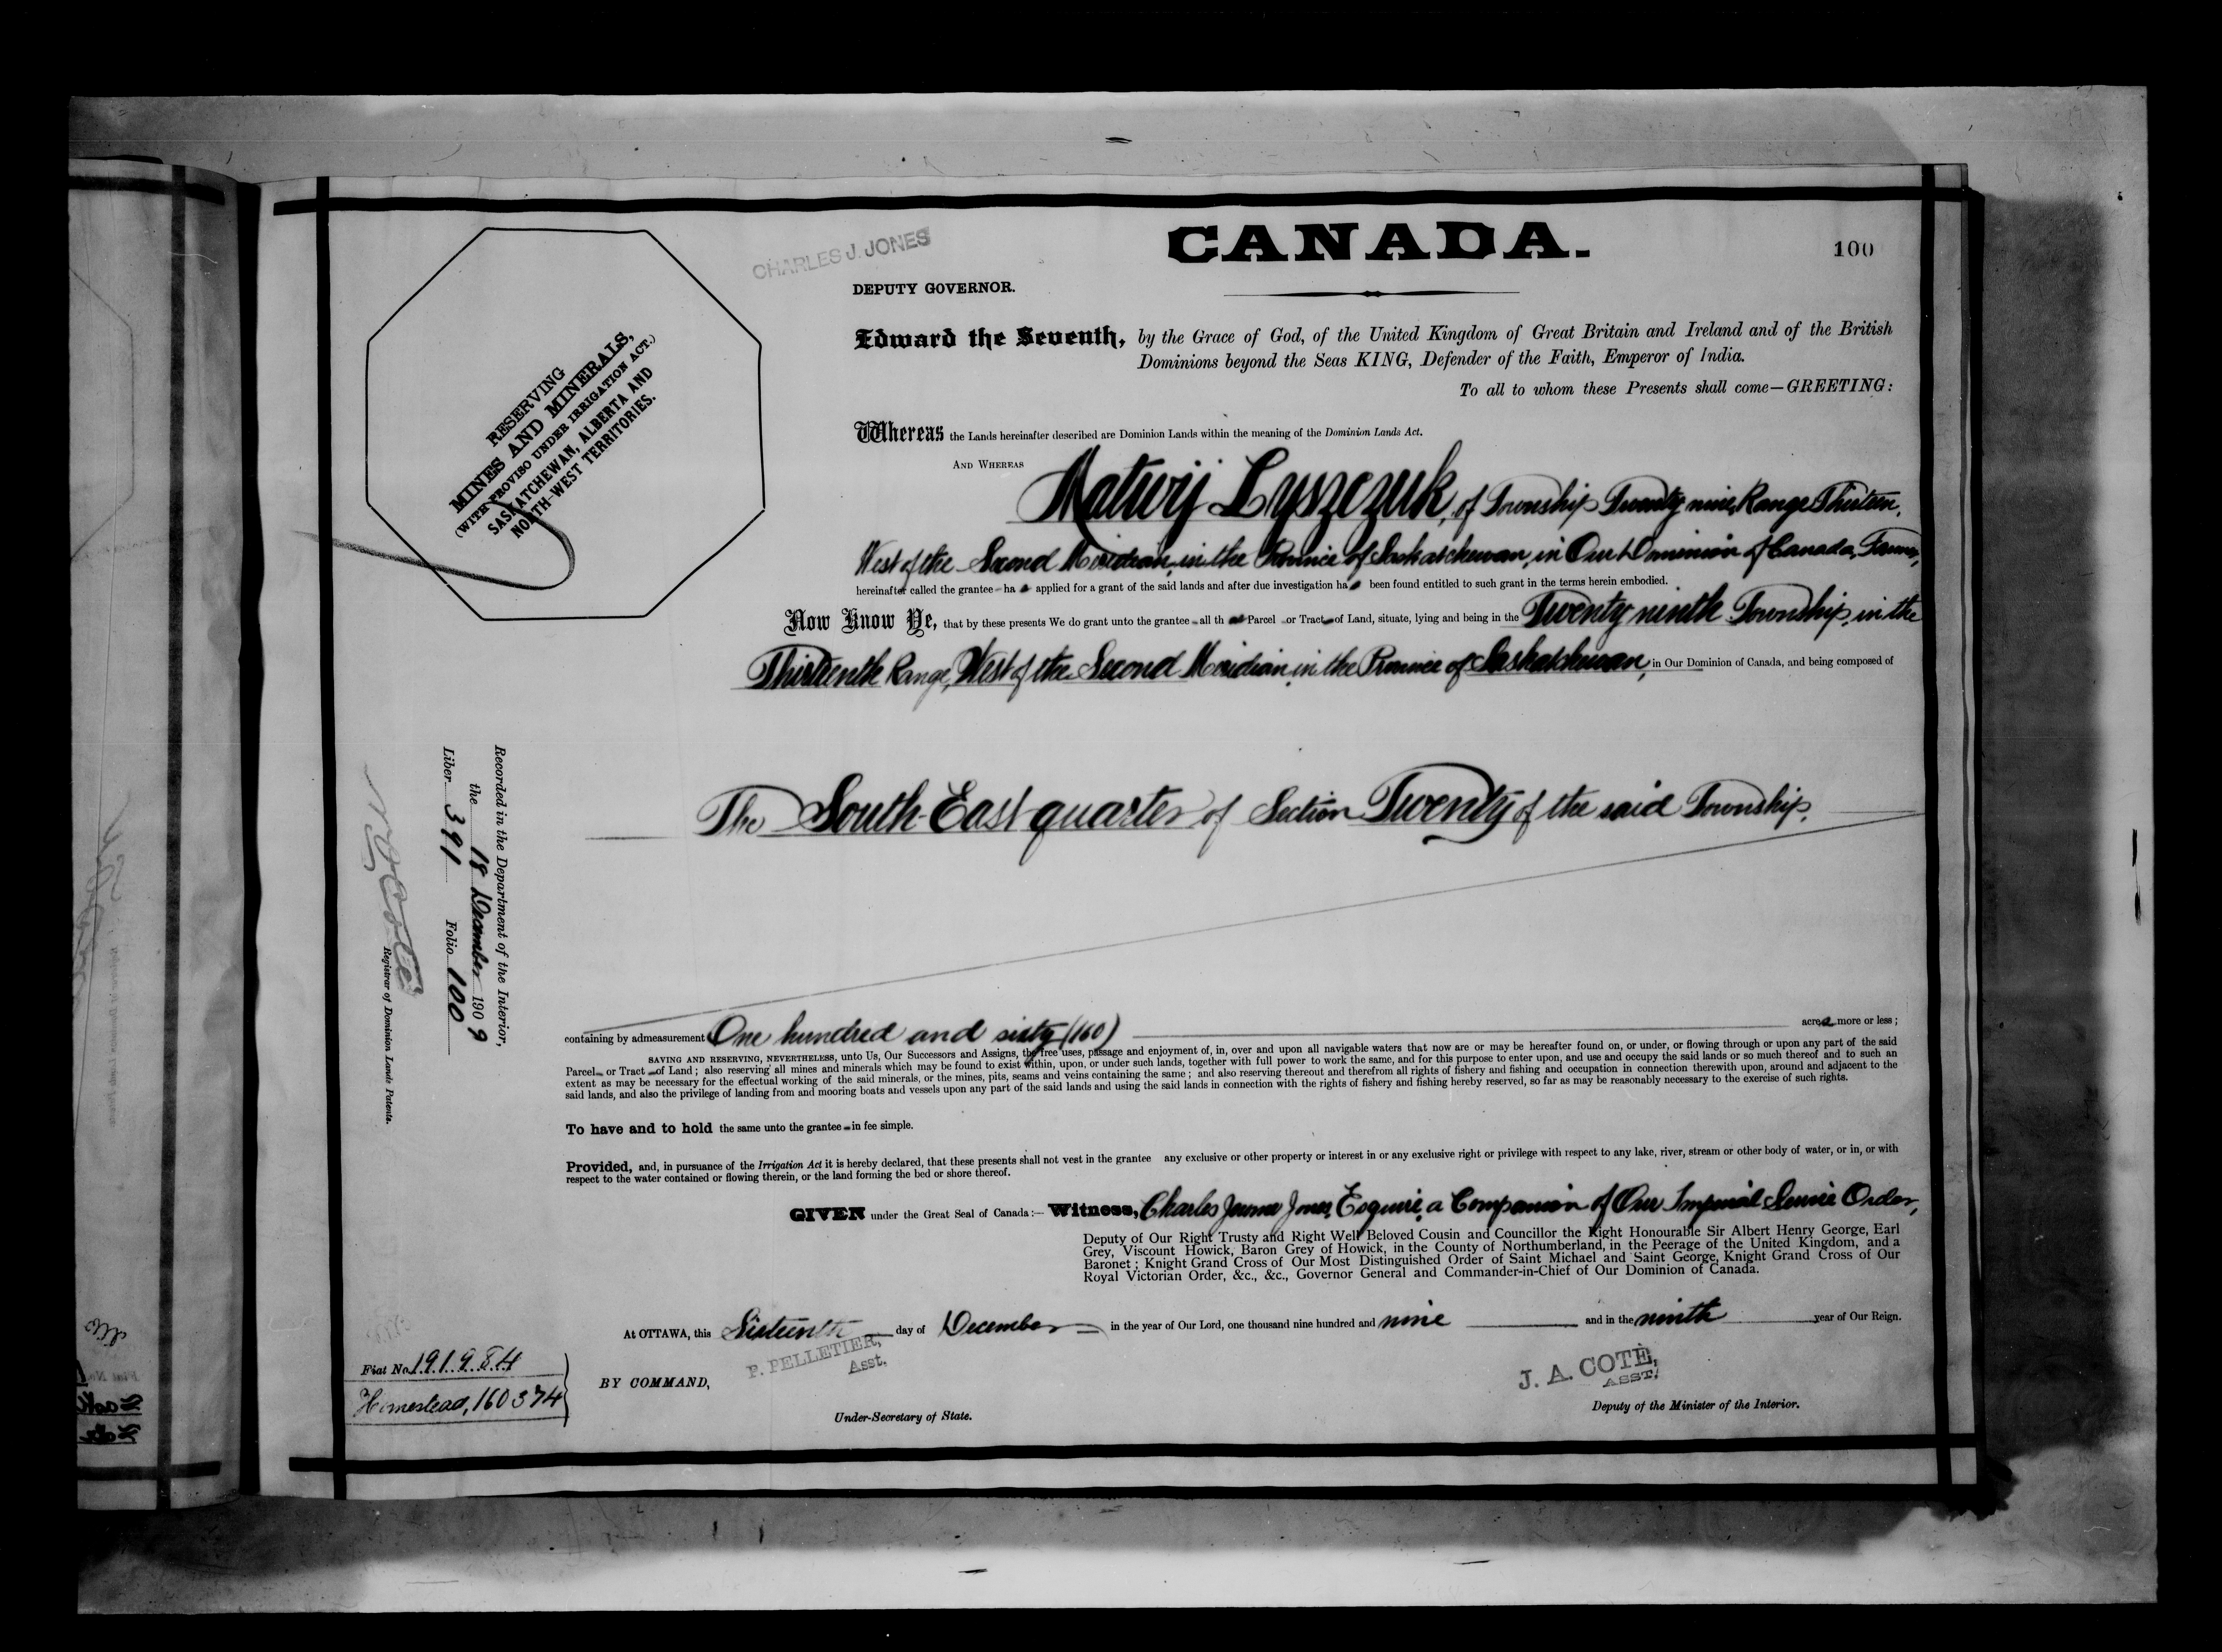 CANADA.
100
CHARLES J. JONES
DEPUTY GOVERNOR.
RESERVING
MINES AND MINERALS,
(WITH PROVISO UNDER IRRIGATION ACT.)
SASKATCHEWAN, ALBERTA AND
NORTH-WEST TERRITORIES.
Edward the Seventh, by the Grace of God, of the United Kingdom of Great Britain and Ireland and of the British
Dominions beyond the Seas KING, Defender of the Faith, Emperor of India.
To all to whom these Presents shall come—GREETING:
Whereas the Lands hereinafter described are Dominion Lands within the meaning of the Dominion Lands Act.
AND WHEREAS Matwij Lyszczuk, of Township Twenty nine, Range Thirteen,
West of the Second Meridian, in the Province of Saskatchewan, in Our Dominion of Canada, Farmer,
hereinafter called the grantee ha s applied for a grant of the said lands and after due investigation ha s been found entitled to such grant in the terms herein embodied.
Now Know Ye, that by these presents We do grant unto the grantee all th at Parcel or Tract of Land, situate, lying and being in the Twenty ninth Township, in the
Thirteenth Range, West of the Second Meridian, in the Province of Saskatchewan, in Our Dominion of Canada, and being composed of
The South-East quarter of Section Twenty of the said Township.
Recorded in the Department of the Interior,
the 18 December 1909
Liber 391 Folio 100
Registrar of Dominion Lands Patents.
containing by admeasurement One hundred and sixty (160) acres more or less;
SAVING AND RESERVING, NEVERTHELESS, unto Us, Our Successors and Assigns, the free uses, passage and enjoyment of, in, over and upon all navigable waters that now are or may be hereafter found on, or under, or flowing through or upon any part of the said
Parcel or Tract of Land; also reserving all mines and minerals which may be found to exist within, upon, or under such lands, together with full power to work the same, and for this purpose to enter upon, and use and occupy the said lands or so much thereof and to such an
extent as may be necessary for the effectual working of the said minerals, or the mines, pits, seams and veins containing the same; and also reserving thereout and therefrom all rights of fishery and fishing and occupation in connection therewith upon, around and adjacent to the
said lands, and also the privilege of landing from and mooring boats and vessels upon any part of the said lands and using the said lands in connection with the rights of fishery and fishing hereby reserved, so far as may be reasonably necessary to the exercise of such rights.
To have and to hold the same unto the grantee in fee simple.
Provided, and, in pursuance of the Irrigation Act it is hereby declared, that these presents shall not vest in the grantee any exclusive or other property or interest in or any exclusive right or privilege with respect to any lake, river, stream or other body of water, or in, or with
respect to the water contained or flowing therein, or the land forming the bed or shore thereof.
GIVEN under the Great Seal of Canada:—Witness, Charles Jerome Jones, Esquire, a Companion of Our Imperial Service Order,
Deputy of Our Right Trusty and Right Well Beloved Cousin and Councillor the Right Honourable Sir Albert Henry George, Earl
Grey, Viscount Howick, Baron Grey of Howick, in the County of Northumberland, in the Peerage of the United Kingdom, and a
Baronet; Knight Grand Cross of Our Most Distinguished Order of Saint Michael and Saint George, Knight Grand Cross of Our
Royal Victorian Order, &c., &c., Governor General and Commander-in-Chief of Our Dominion of Canada.
At OTTAWA, this Sixteenth day of December in the year of Our Lord, one thousand nine hundred and nine and in the ninth year of Our Reign.
P. PELLETIER,
Asst.
J. A. COTÉ,
ASST.
BY COMMAND,
Under-Secretary of State.
Deputy of the Minister of the Interior.
Fiat No. 191984
Homestead, 160374